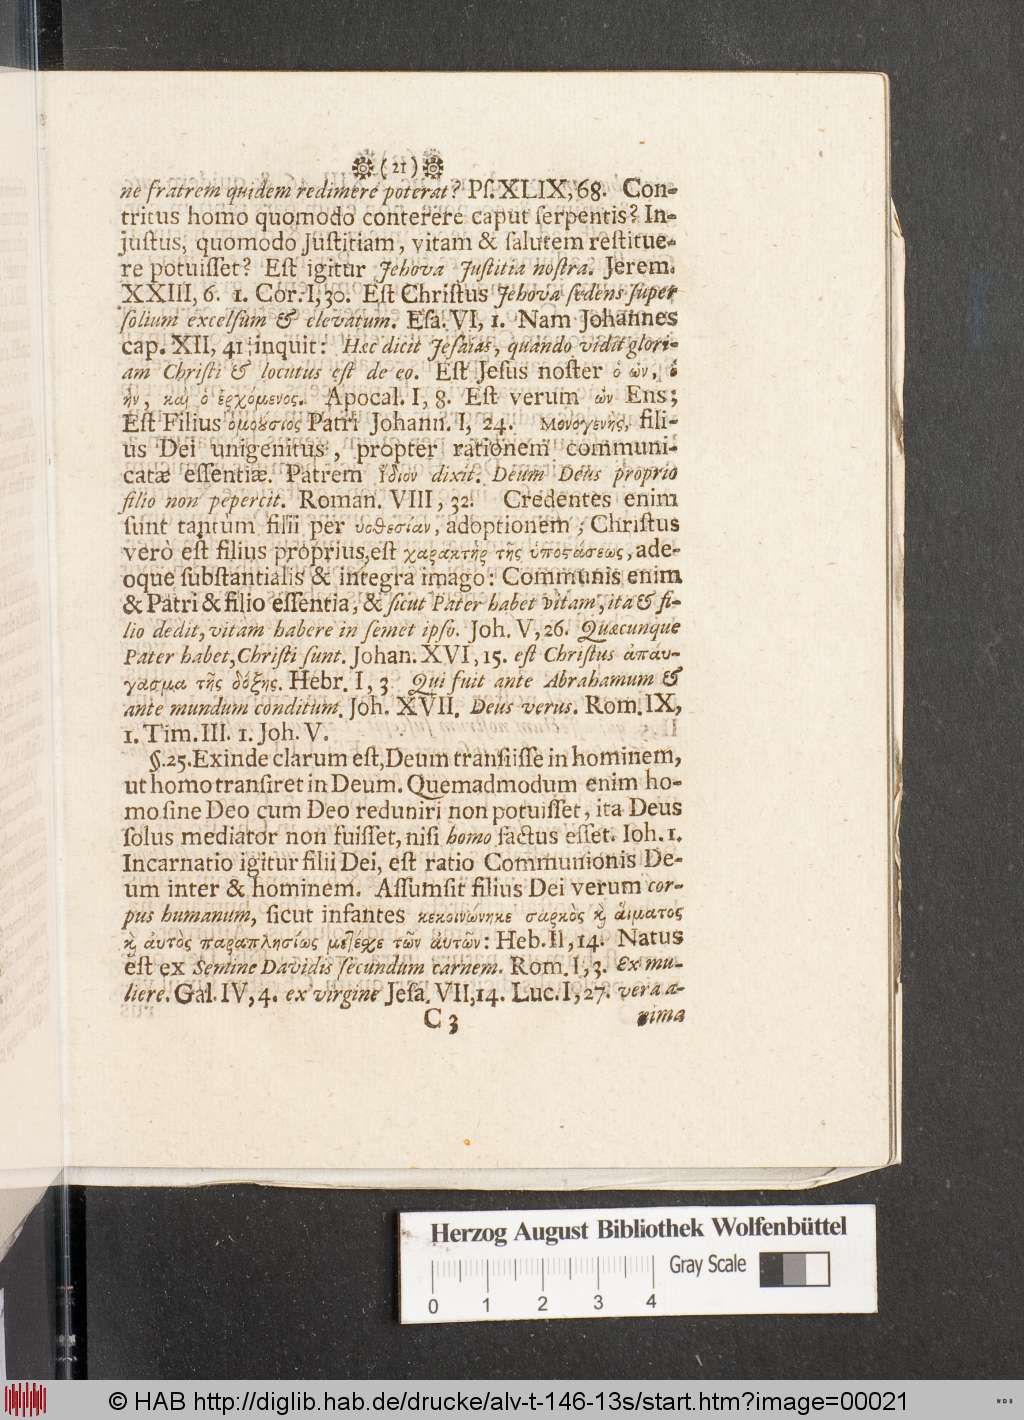 (21)
ne fratrem quidem redimere poterat? Pſ. XLIX, 68. Con-
tritus homo quomodo conterere caput ſerpentis? In-
juſtus, quomodo Juſtitiam, vitam & ſalutem reſtitue-
re potuiſſet? Eſt igitur Jehova Juſtitia noſtra. Jerem.
XXIII, 6. 1. Cor. I, 30. Eſt Chriſtus Jehova ſedens ſuper
ſolium excelſum & elevatum. Eſa. VI, 1. Nam Johannes
cap. XII, 41 inquit: Hæc dicit Jeſaias, quando vidit glori-
am Chriſti & locutus eſt de eo. Eſt Jeſus noſter ὁ ὢν, ὁ
ἦν, καὶ ὁ ἐρχόμενος. Apocal. I, 8. Eſt verum ὢν Ens;
Eſt Filius ὁμούσιος Patri Johann. I, 24. Μονογενὴς, fili-
us Dei unigenitus, propter rationem communi-
catæ eſſentiæ. Patrem ἴδιον dixit. Deum Deus proprio
filio non pepercit. Roman. VIII, 32. Credentes enim
ſunt tantùm filii per υοθεσίαν, adoptionem; Chriſtus
verò eſt filius proprius, eſt χαρακτὴρ τῆς ὑποστάσεως, ade-
oque ſubſtantialis & integra imago: Communis enim
& Patri & filio eſſentia, & ſicut Pater habet vitam, ita & fi-
lio dedit, vitam habere in ſemet ipſo. Joh. V, 26. Quæcunque
Pater habet, Chriſti ſunt. Johan. XVI, 15. eſt Chriſtus ἀπαύ-
γασμα τῆς δόξης. Hebr. I, 3 Qui fuit ante Abrahamum &
ante mundum conditum. Joh. XVII. Deus verus. Rom. IX,
1. Tim. III. 1. Joh. V.
§. 25. Exinde clarum eſt, Deum tranſiiſſe in hominem,
ut homo tranſiret in Deum. Quemadmodum enim ho-
mo ſine Deo cum Deo reduniri non potuiſſet, ita Deus
ſolus mediator non fuiſſet, niſi homo factus eſſet. Ioh. 1.
Incarnatio igitur filii Dei, eſt ratio Communionis De-
um inter & hominem. Aſſumſit filius Dei verum cor-
pus humanum, ſicut infantes κεκοινώνηκε σαρκὸς κὶ αἵματος
κὶ ἀυτὸς παραπλησίως μετέχε τῶν ἀυτῶν: Heb. II, 14. Natus
eſt ex Semine Davidis ſecundum carnem. Rom. I, 3. Ex mu-
liere. Gal. IV, 4. ex virgine Jeſa. VII, 14. Luc. I, 27. vera a-
C 3 nima
Herzog August Bibliothek Wolfenbüttel
Gray Scale
0 1 2 3 4
© HAB http://diglib.hab.de/drucke/alv-t-146-13s/start.htm?image=00021